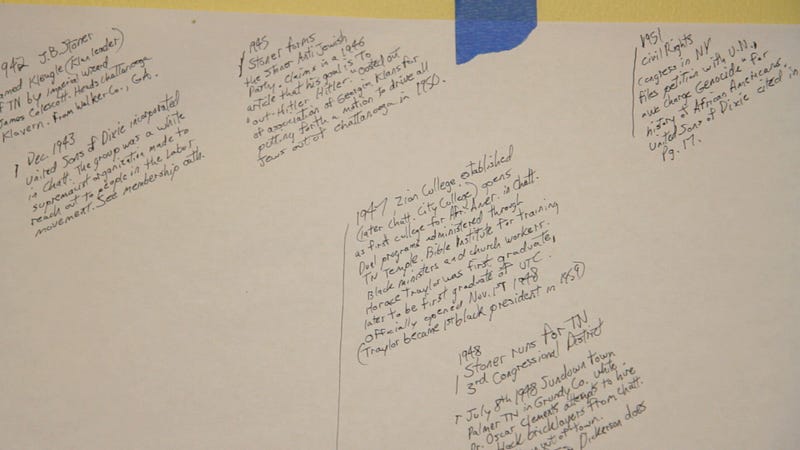 1942 J.B. Stoner
named Kleagle (Klan leader)
of TN by Imperial Wizard
James Colescott. Heads Chattanooga
Klavern. From Walker Co., GA.
Dec. 1943
United Sons of Dixie incorporated
in Chatt. The group was a white
supremacist organization made to
reach out to people in the Labor
movement. See membership oath.
1945
Stoner forms
the Stoner Anti Jewish
Party. Claims in a 1946
article that his goal is to
"out-Hitler, Hitler". Ousted out
of association of Georgia Klans for
putting forth a motion to drive all
Jews out of Chattanooga in 1950.
1951
Civil Rights
Congress in NY
files petition with U.N.,
"We Charge Genocide" for
history of African Americans.
United Sons of Dixie cited in
Pg. 17.
1947 Zion College established
(later Chatt. City College) opens
as first college for Afri. Amer. in Chatt.
Duel programs administered through
TN Temple. Bible Institute for training
Black ministers and church workers.
Horace Traylor was first graduate,
later to be first graduate of UTC.
Officially opened Nov. 1st 1948
(Traylor became 1st black president in 1959)
1948
Stoner runs for TN
3rd Congressional District
July 8th 1948 Sundown town
Palmer TN in Grundy Co. White
Dr. Oscar Clements attempts to hire
black bricklayers from Chatt.
out of town.
Dickerson does